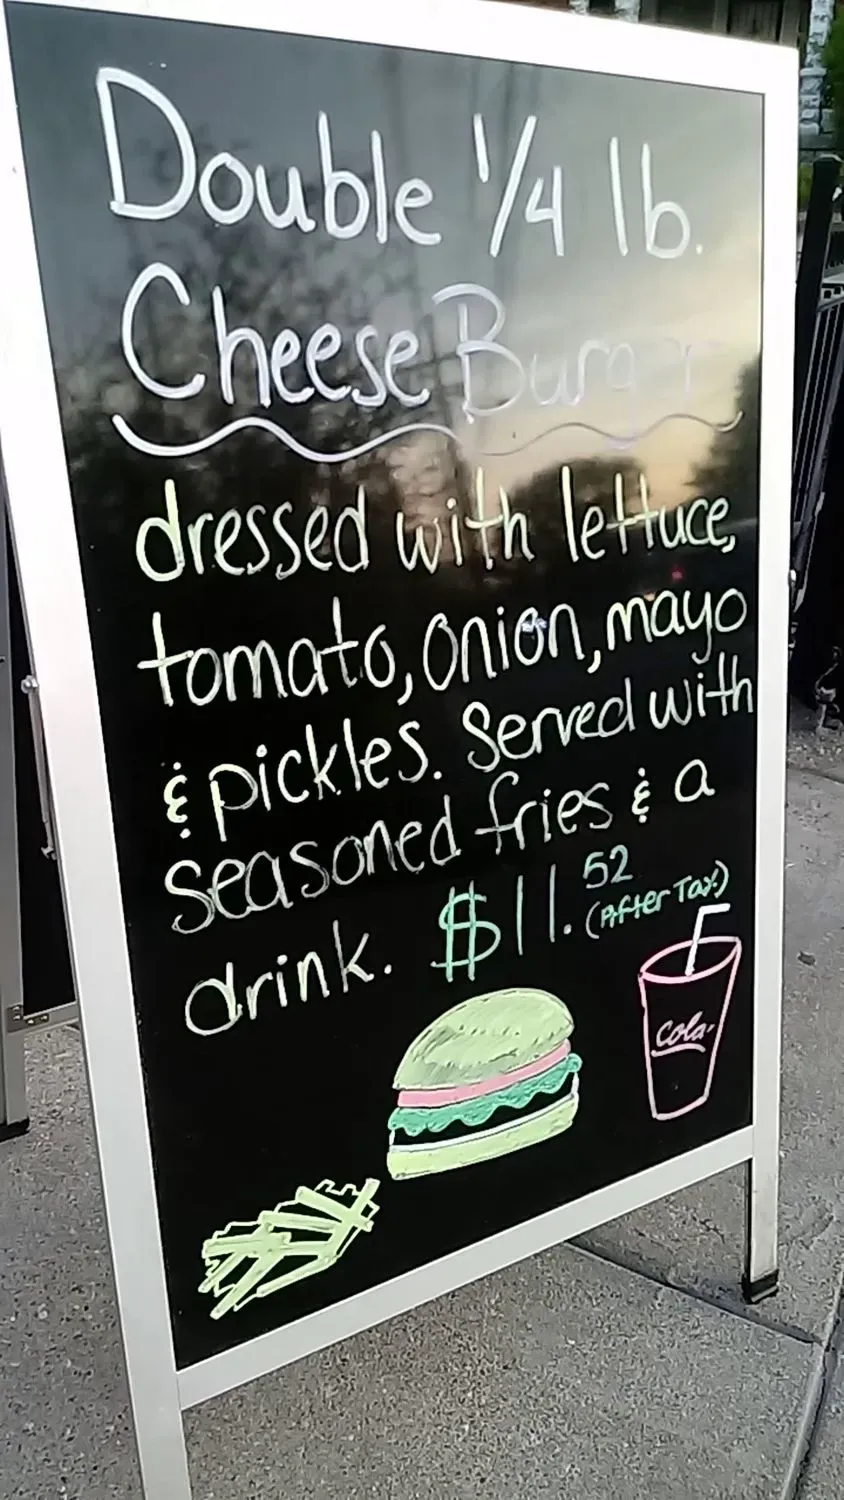 Double 1/4 lb.
Cheese Burger
dressed with lettuce,
tomato, onion, mayo
& pickles. Served with
seasoned fries & a
drink. $11.52
(After Tax)
Cola